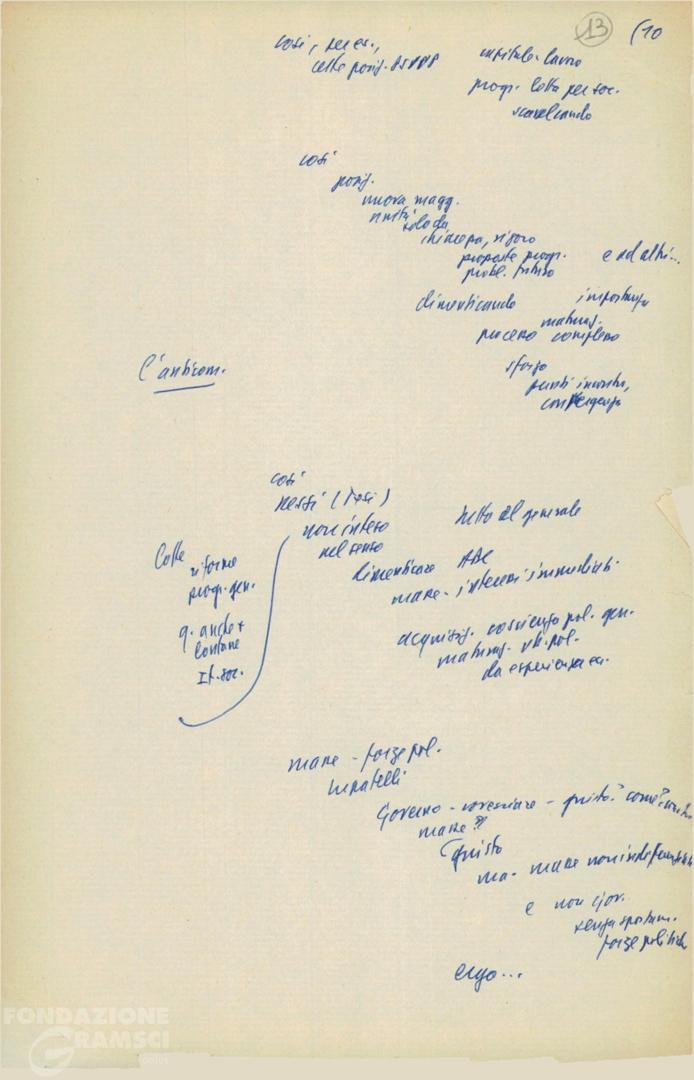 13 (10
così, per es.,
certe posiz. PSIUP
capitale-lavoro
progr. lotta per soc.
scavalcando
così
posiz.
nuova magg.
unità
solo da
chiarezza, rigore
proposte progr.
probl. futuro
e ad altri...
dimenticando
importanza
maturaz.
processo complesso
sforzo
punti incontro,
convergenza
l'anticom.
così
nessi (Tesi)
non inteso
nel senso
tutto al generale
dimenticare ABC
masse - interessi immediati
acquisiz. coscienza pol. gen.
maturaz. pol.
da esperienza ec.
riforme
progr. gen.
q. anche +
lontane
It. soc.
masse - forze pol.
Governo - rovesciare - giusto? come?
masse?
giusto
ma - masse non indifferenziate
e non
senza spostam.
forze politiche
ergo...
FONDAZIONE
GRAMSCI